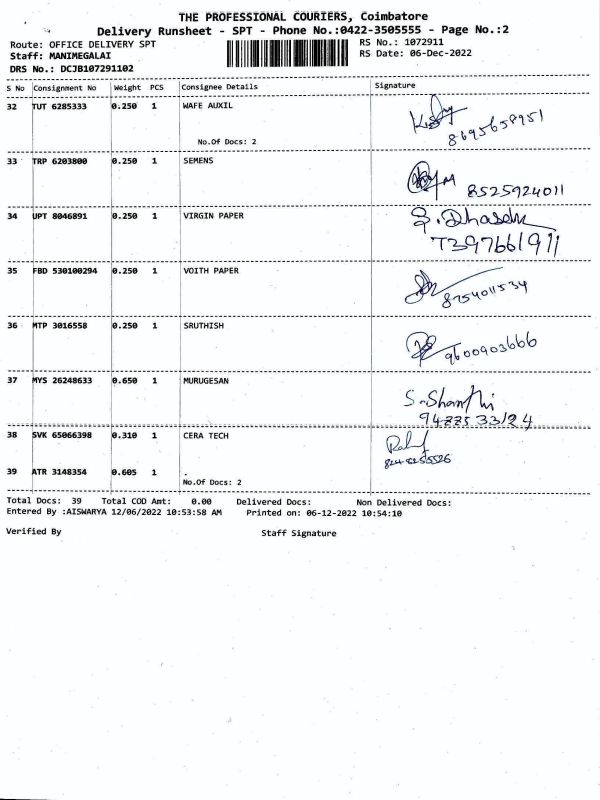 THE PROFESSIONAL COURIERS, Coimbatore
Delivery Runsheet - SPT - Phone No.:0422-3505555 - Page No.:2
Route: OFFICE DELIVERY SPT RS No.: 1072911
Staff: MANIMEGALAI RS Date: 06-Dec-2022
DRS No.: DCJB107291102
S No Consignment No Weight PCS Consignee Details Signature
32 TUT 6285333 0.250 1 WAFE AUXIL
8695658951
No.Of Docs: 2
33 TRP 6203800 0.250 1 SEMENS
8525924011
34 UPT 8046891 0.250 1 VIRGIN PAPER
7397661911
35 FBD 530100294 0.250 1 VOITH PAPER
8754011534
36 MTP 3016558 0.250 1 SRUTHISH
9600903666
37 MYS 26248633 0.650 1 MURUGESAN
S. Shanthi
9488533124
38 SVK 65066398 0.310 1 CERA TECH
39 ATR 3148354 0.605 1 .
No.Of Docs: 2
Total Docs: 39 Total COD Amt: 0.00 Delivered Docs: Non Delivered Docs:
Entered By :AISWARYA 12/06/2022 10:53:58 AM Printed on: 06-12-2022 10:54:10
Verified By Staff Signature